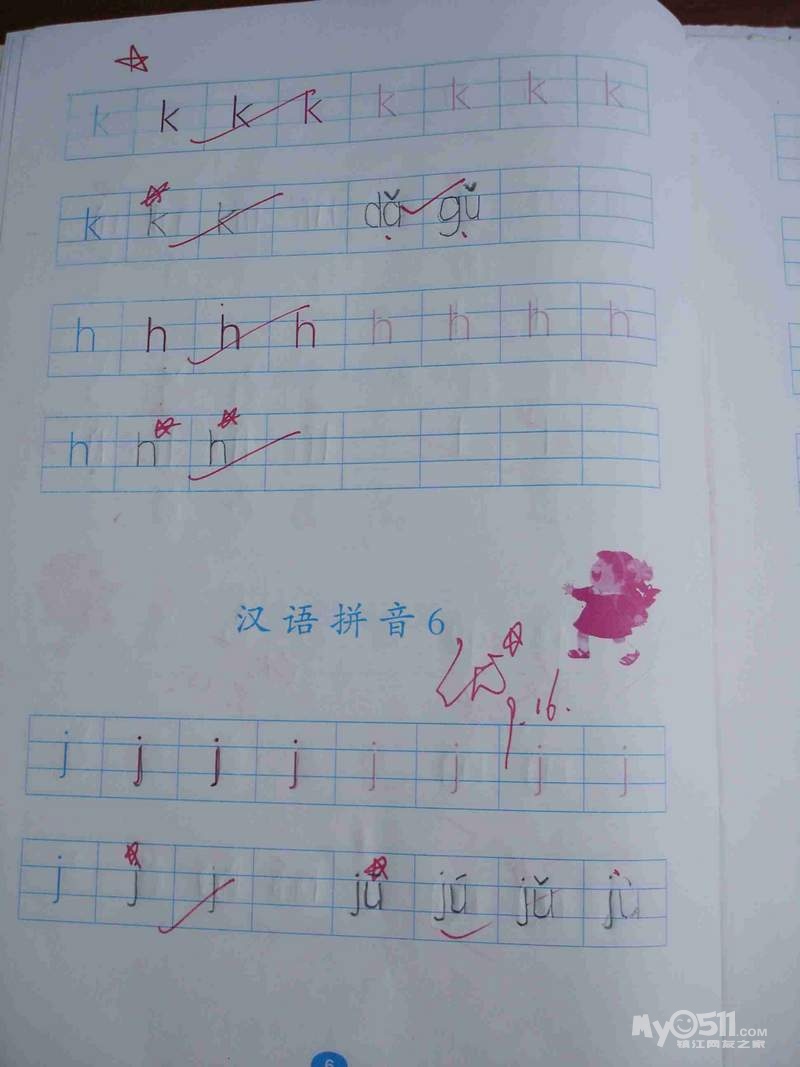 k k k k k k k k
k k k dǎ gǔ
h h h h h h h h
h h h
汉语拼音6
9.16.
j j j j j j j j
j j j jū jú jǔ jù
6
My0511.COM
镇江网友之家